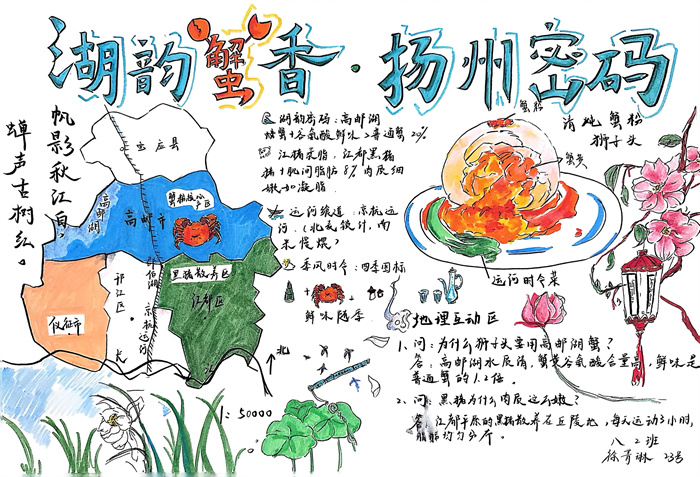 湖韵蟹香·扬州密码
帆影秋江白,
蝉声古树红。
宝应县
高邮湖
高邮市
蟹
产区
黑猪散养区
江都区
仪征市
邗江区
京杭运河
长
北
1:50000
湖韵密码:高邮湖
螃蟹谷氨酸鲜味是普通蟹20%
江猪灵脂,江都黑猪
猪肌间脂肪8%肉质细
嫩如凝脂
运河绿道:京杭运
河、(北
季风时令:四季图标
鲜味随季
蟹粉
清炖蟹粉
狮子头
蟹黄
运河时令菜
地理互动区
1、问:为什么狮子头要用高邮湖蟹?
答:高邮湖水质清,蟹黄谷氨酸含量高,鲜味是
普通蟹的1.2倍。
2、问:黑猪为什么肉质这么嫩?
答:江都平原的黑猪散养在丘陵地,每天运动3小时,
脂肪均匀分布。
八2班
23号